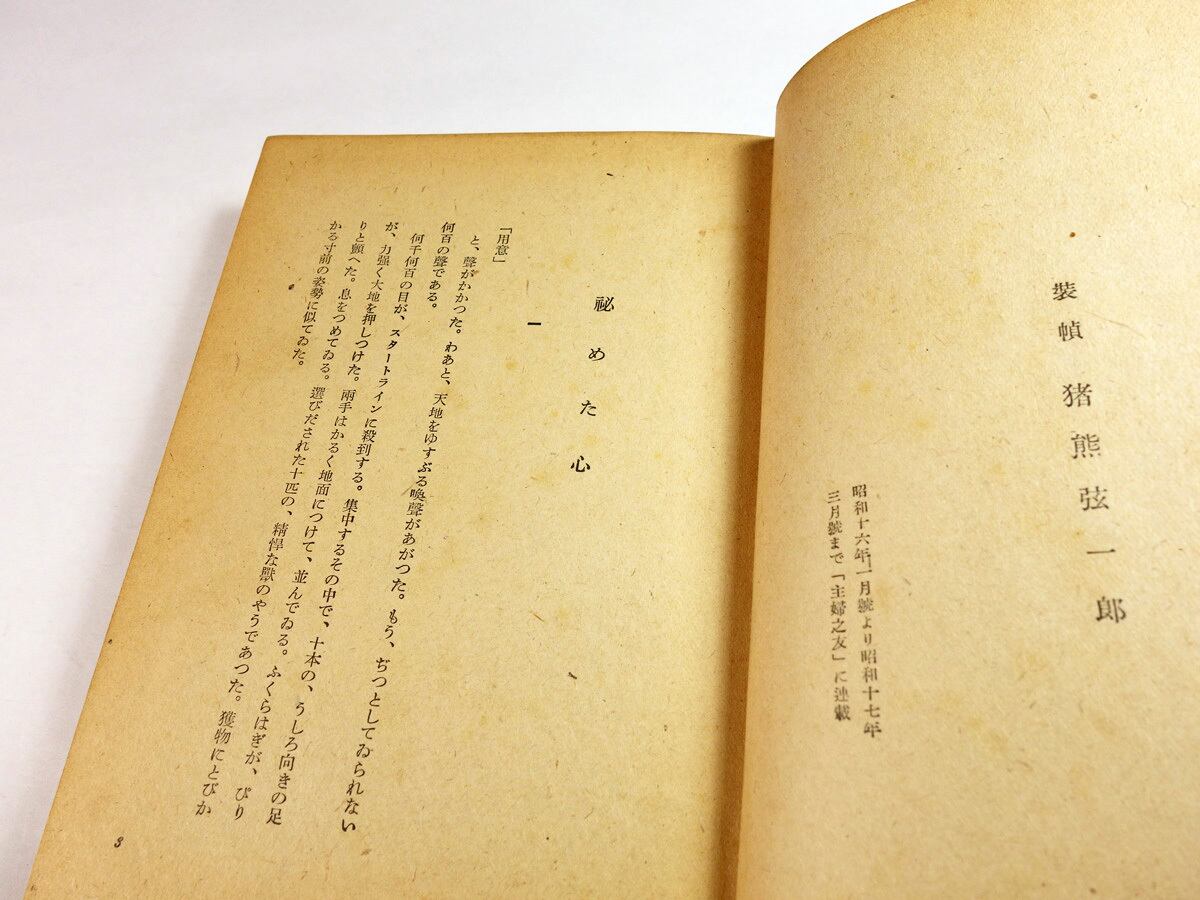 裝幀 猪熊弦一郎
昭和十六年一月號より昭和十七年
三月號まで「主婦之友」に連載
祕めた心
一
「用意」
と、聲がかかつた。わあと、天地をゆすぶる喚聲があがつた。もう、ぢつとしてゐられない
何百の聲である。
何千何百の目が、スタートラインに殺到する。集中するその中で、十本の、うしろ向きの足
が、力強く大地を押しつけた。兩手はかるく地面につけて、並んでゐる。ふくらはぎが、ぴり
りと顫へた。息をつめてゐる。選びだされた十匹の、精悍な獸のやうであつた。獲物にとびか
かる寸前の姿勢に似てゐた。
3